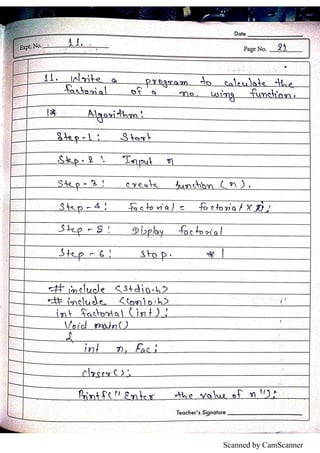 Date
Expt. No. 11.
Page No. 29
11. Write a program to calculate the
factorial of a no. using function.
/* Algorithm:
Step-1: Start
Step-2: Input n
Step-3: create function (n).
Step-4: factorial = factorial X i;
Step-5: Display factorial
Step-6: stop. */
# include <stdio.h>
# include <conio.h>
int factorial (int);
Void main()
{
int n, fac;
clrscr();
Printf("Enter the value of n");
Teacher's Signature
Scanned by CamScanner